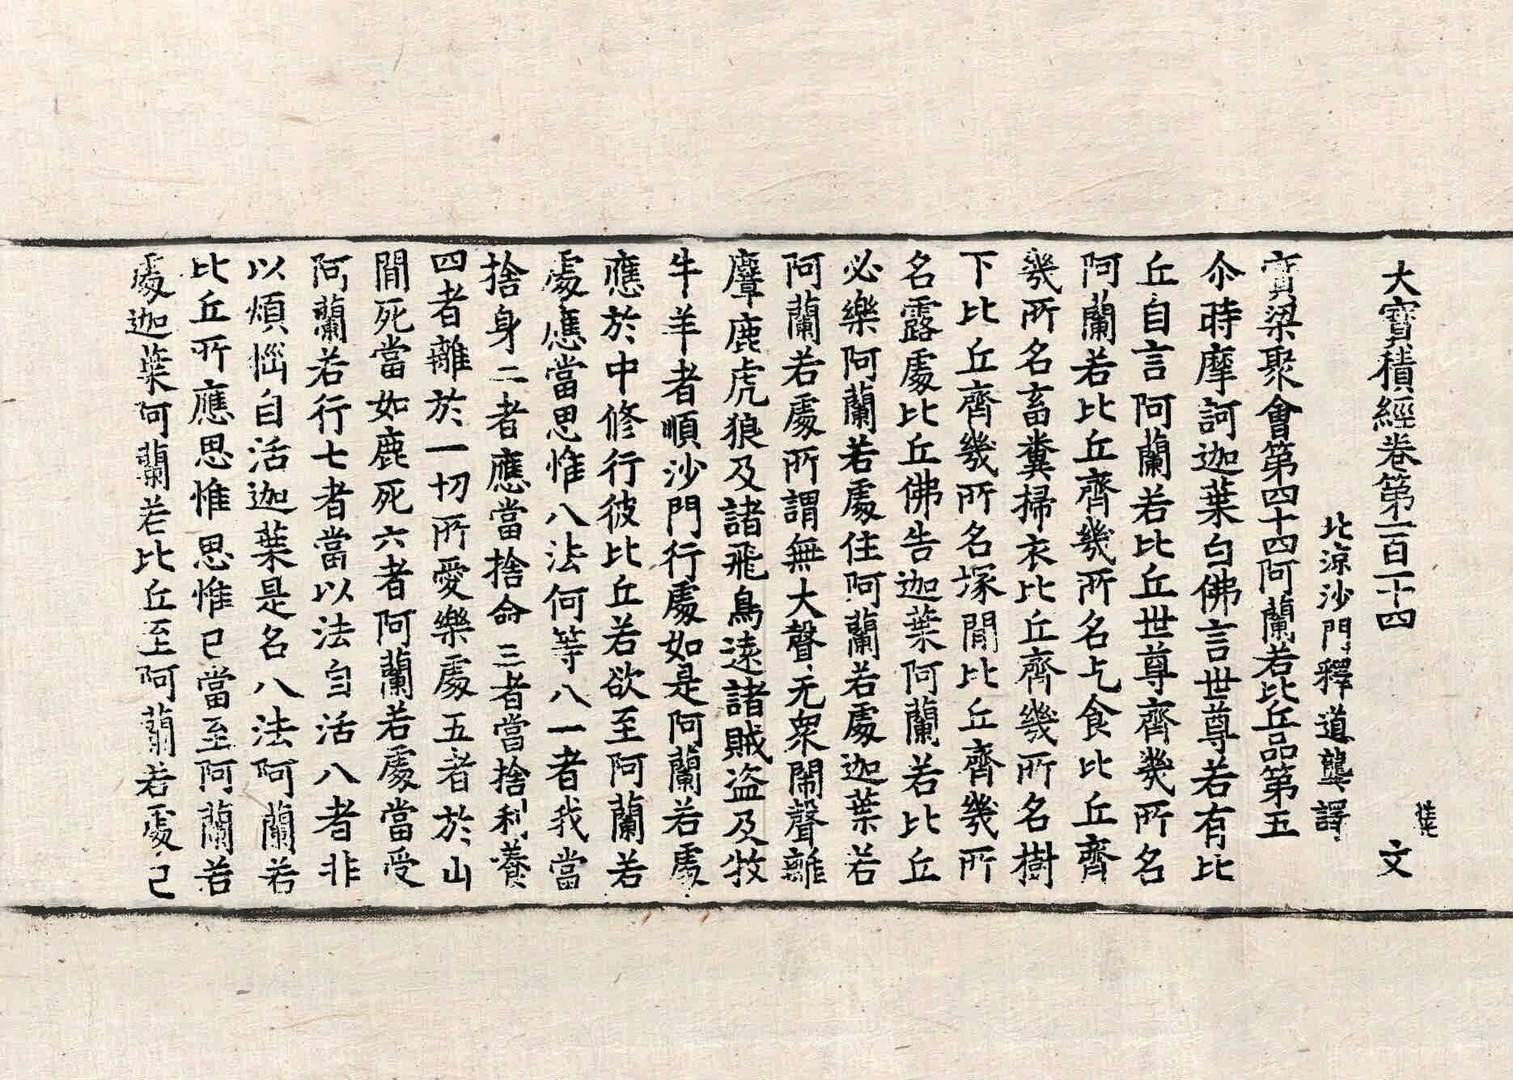 大寶積經卷第一百一十四 文
北涼沙門釋道龔譯
寶梁聚會第四十四阿蘭若比丘品第五
尒時摩訶迦葉白佛言世尊若有比
丘自言阿蘭若比丘世尊齊幾所名
阿蘭若比丘齊幾所名乞食比丘齊
幾所名畜糞掃衣比丘齊幾所名樹
下比丘齊幾所名塚閒比丘齊幾所
名露處比丘佛告迦葉阿蘭若比丘
必樂阿蘭若處住阿蘭若處迦葉若
阿蘭若處所謂無大聲无衆閙聲離
麞鹿虎狼及諸飛鳥遠諸賊盗及牧
牛羊者順沙門行處如是阿蘭若處
應於中修行彼比丘若欲至阿蘭若
處應當思惟八法何等八一者我當
捨身二者應當捨命三者當捨利養
四者離於一切所愛樂處五者於山
閒死當如鹿死六者阿蘭若處當受
阿蘭若行七者當以法自活八者非
以煩惱自活迦葉是名八法阿蘭若
比丘所應思惟思惟已當至阿蘭若
處迦葉阿蘭若比丘至阿蘭若處已